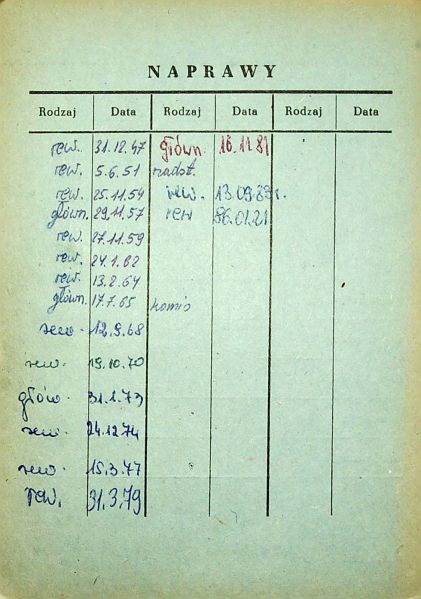 NAPRAWY
Rodzaj Data Rodzaj Data Rodzaj Data
rew. 31.12.47 główn. 16.11.81
rew. 5.6.51
rew. 25.11.54 rew. 13.09.83r.
główn. 29.11.57 rew 86.01.21
rew. 27.11.59
rew. 24.1.62
rew. 13.2.64
główn. 17.7.65
rew. 12.9.68
rew. 19.10.70
głów. 31.1.73
rew. 24.12.74
rew. 15.3.77
rew. 31.3.79